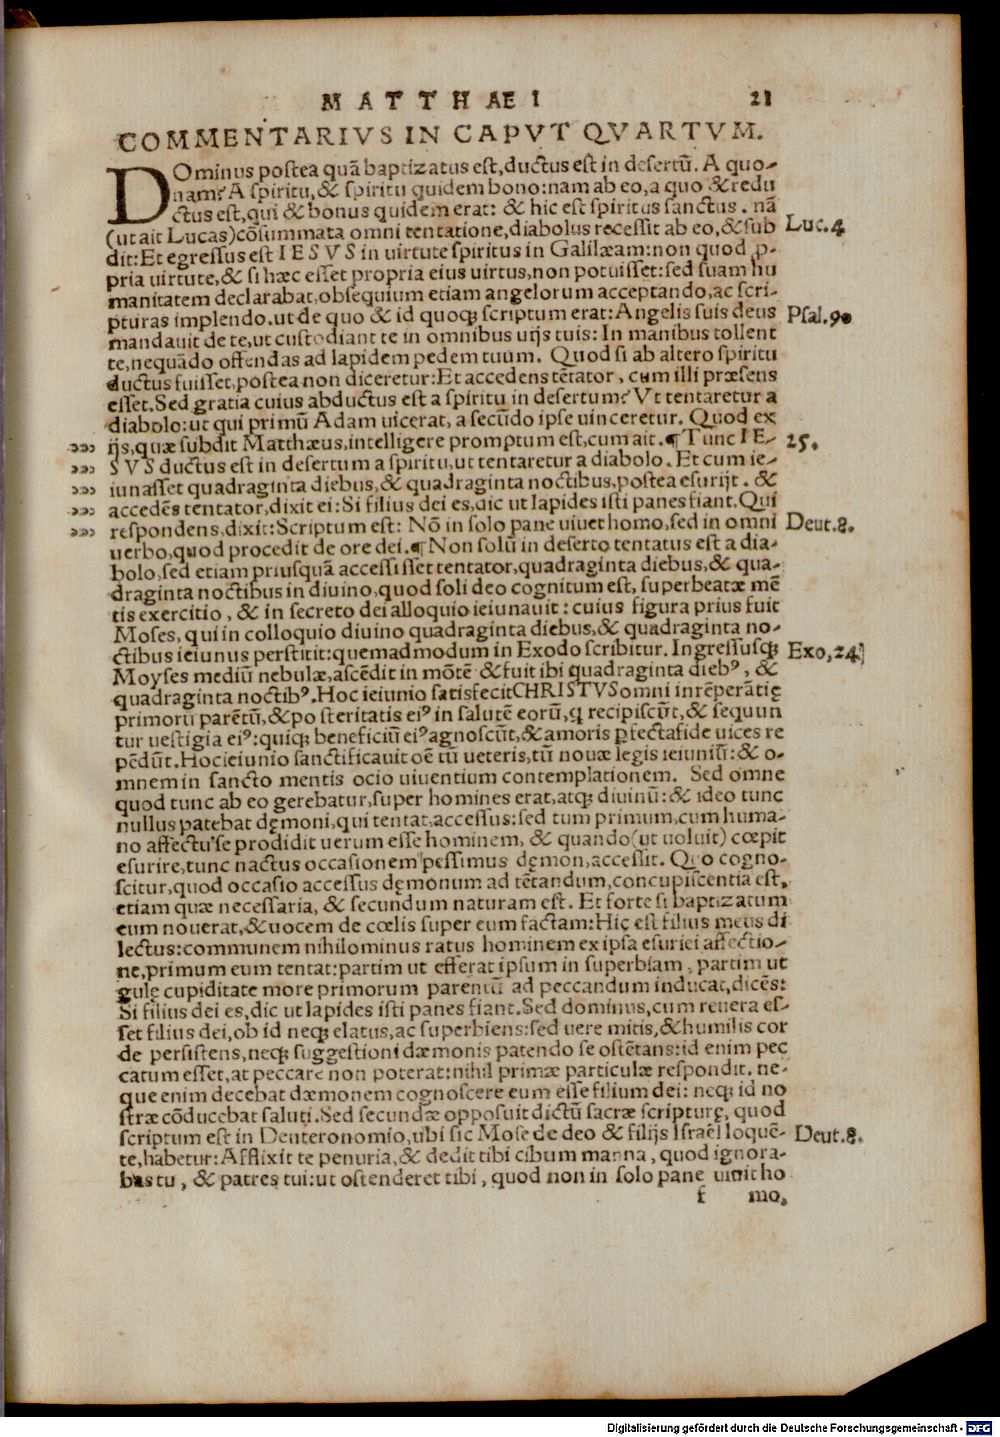 MATTHAEI 21
COMMENTARIVS IN CAPVT QVARTVM.
DOminus postea quã baptizatus est,ductus est in desertũ. A quo-
nam? A spiritu,& spiritu quidem bono:nam ab eo,a quo & redu
ctus est,qui & bonus quidem erat: & hic est spiritus sanctus. nã
(ut ait Lucas)cõsummata omni tentatione,diabolus recessit ab eo,& sub Luc.4
dit:Et egressus est IESVS in uirtute spiritus in Galilæam:non quod ꝓ-
pria uirtute,& si hæc esset propria eius uirtus,non potuisset:sed suam hu
manitatem declarabat,obsequium etiam angelorum acceptando,ac scri-
pturas implendo.ut de quo & id quoqꝫ scriptum erat:Angelis suis deus Psal.90
mandauit de te,ut custodiant te in omnibus uijs tuis:In manibus tollent
te,nequãdo offendas ad lapidem pedem tuum. Quod si ab altero spiritu
ductus fuisset,postea non diceretur:Et accedens tẽtator, cum illi præsens
esset.Sed gratia cuius abductus est a spiritu in desertum? Vt tentaretur a
diabolo:ut qui primũ Adam uicerat, a secũdo ipse uinceretur. Quod ex
ijs,quæ subdit Matthæus,intelligere promptum est,cum ait.¶Tunc IE- 25.
SVS ductus est in desertum a spiritu,ut tentaretur a diabolo.Et cum ie-
iunasset quadraginta diebus,& quadraginta noctibus,postea esurijt. &
accedẽs tentator,dixit ei:Si filius dei es,dic ut lapides isti panes fiant.Qui
respondens,dixit:Scriptum est: Nõ in solo pane uiuet homo,sed in omni Deut.8.
uerbo,quod procedit de ore dei.¶Non solũ in deserto tentatus est a dia-
bolo,sed etiam priusquã accessisset tentator,quadraginta diebus,& qua-
draginta noctibus in diuino,quod soli deo cognitum est, superbeatæ mẽ
tis exercitio, & in secreto dei alloquio ieiunauit: cuius figura prius fuit
Moses, qui in colloquio diuino quadraginta diebus,& quadraginta no-
ctibus ieiunus perstitit:quemadmodum in Exodo scribitur. Ingressusqꝫ Exo,24.
Moyses mediũ nebulæ,ascẽdit in mõtẽ & fuit ibi quadraginta diebꝰ, &
quadraginta noctibꝰ.Hoc ieiunio satisfecit CHRISTVS omni intẽperãtię
primorũ parẽtũ,& posteritatis eiꝰ in salutẽ eorũ,q̃ recipiscũt,& sequun
tur uestigia eiꝰ:quiqꝫ beneficiũ eiꝰ agnoscũt,& amoris ꝑfecta fide uices re
pẽdũt.Hoc ieiunio sanctificauit oẽ tũ ueteris,tũ nouæ legis ieiuniũ:& o-
mnem in sancto mentis ocio uiuentium contemplationem. Sed omne
quod tunc ab eo gerebatur,super homines erat,atqꝫ diuinũ:& ideo tunc
nullus patebat dęmoni,qui tentat,accessus:sed tum primum,cum huma-
no affectu se prodidit uerum esse hominem, & quando (ut uoluit) cœpit
esurire,tunc nactus occasionem pessimus dęmon,accessit. Quo cogno-
scitur,quod occasio accessus dęmonum ad tẽtandum,concupiscentia est,
etiam quæ necessaria, & secundum naturam est. Et forte si baptizatum
eum nouerat,& uocem de cœlis super eum factam:Hic est filius meus di
lectus:communem nihilominus ratus hominem ex ipsa esuriei affectio-
ne,primum eum tentat:partim ut efferat ipsum in superbiam, partim ut
gulę cupiditate more primorum parentũ ad peccandum inducat,dicẽs:
Si filius dei es,dic ut lapides isti panes fiant.Sed dominus,cum reuera es-
set filius dei,ob id neqꝫ elatus,ac superbiens:sed uere mitis,& humilis cor
de persistens,neqꝫ suggestioni dæmonis patendo se ostẽtans:id enim pec
catum esset,at peccare non poterat:nihil primæ particulæ respondit. ne-
que enim decebat dæmonem cognoscere eum esse filium dei: neqꝫ id no
stræ cõducebat saluti.Sed secundæ opposuit dictũ sacræ scripturę, quod
scriptum est in Deuteronomio,ubi sic Mose de deo & filijs Israël loquẽ- Deut.8.
te,habetur:Afflixit te penuria,& dedit tibi cibum manna, quod ignora-
bas tu, & patres tui:ut ostenderet tibi, quod non in solo pane uiuit ho
f mo.
Digitalisierung gefördert durch die Deutsche Forschungsgemeinschaft - DFG